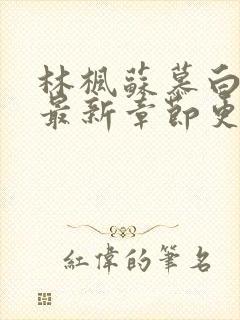 林楓蘇慕白
最新章節更
紅偉的筆名